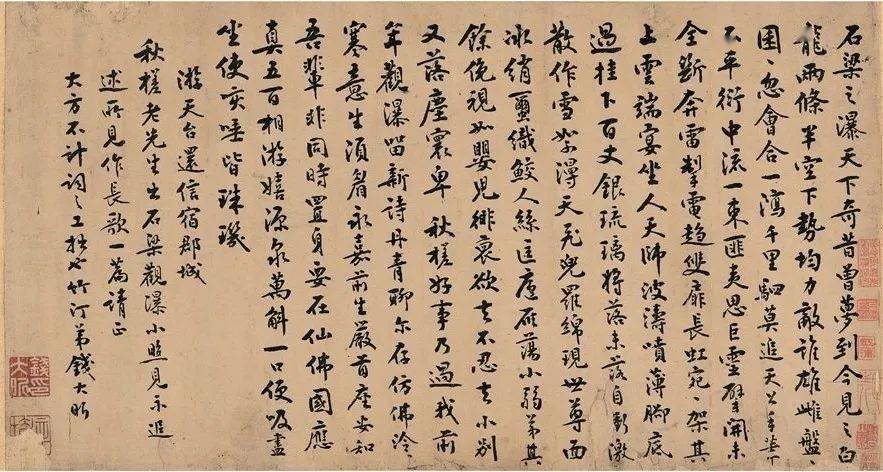 石梁之瀑天下奇昔曾夢到今見之白
龍兩條半空下勢均力敵誰雄雌盤々
困々忽會合一瀉千里駟莫追天公手
不平衍中流一束匪夷思巨靈擘開未
全斷奔雷掣電趨雙扉長虹宛宛架其
上雲端宴坐人天師波濤噴薄腳底
過挂下百丈銀琉璃將落未落自動激
散作雪絮漫天飛兜羅綿現世尊面
冰綃蠶織鮫人絲匡廬雁蕩小弱弟其
餘俛視如嬰兒徘裵欲去不忍去小別
又落塵寰卑秋槎好事乃過我前
年觀瀑留新詩丹青聊尔存仿佛泠
寒意生須眉永嘉前生嚴首座安知
吾輩非同時置身要在仙佛國應
真五百相游嬉源泉萬斛一口便吸盡
坐使咳唾皆珠璣
游天台還信宿郡城
秋槎老先生出石梁觀瀑小照見示追
述所見作長歌一篇請正
大方不計詞之工拙也竹汀弟錢大昕
錢印大昕